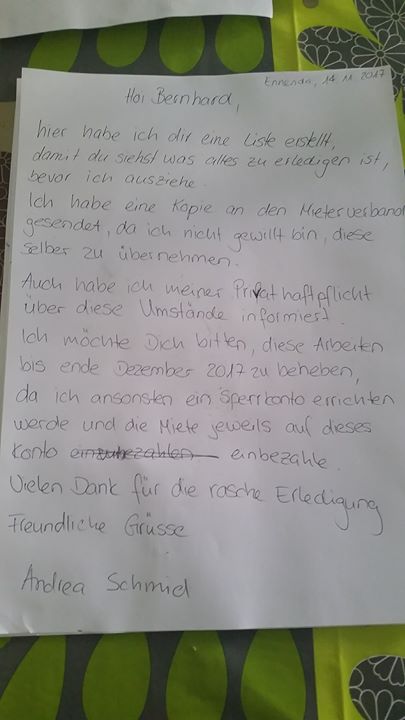 Ennenda, 14.11.2017
Hoi Bernhard,
hier habe ich dir eine Liste erstellt,
damit du siehst was alles zu erledigen ist,
bevor ich ausziehe.
Ich habe eine Kopie an den Mieterverband
gesendet, da ich nicht gewillt bin, diese
selber zu übernehmen.
Auch habe ich meiner Privathaftpflicht
über diese Umstände informiert.
Ich möchte Dich bitten, diese Arbeiten
bis ende Dezember 2017 zu beheben,
da ich ansonsten ein Sperrkonto errichten
werde und die Miete jeweils auf dieses
Konto einzubezahlen einbezahle.
Vielen Dank für die rasche Erledigung
Freundliche Grüsse
Andrea Schmid